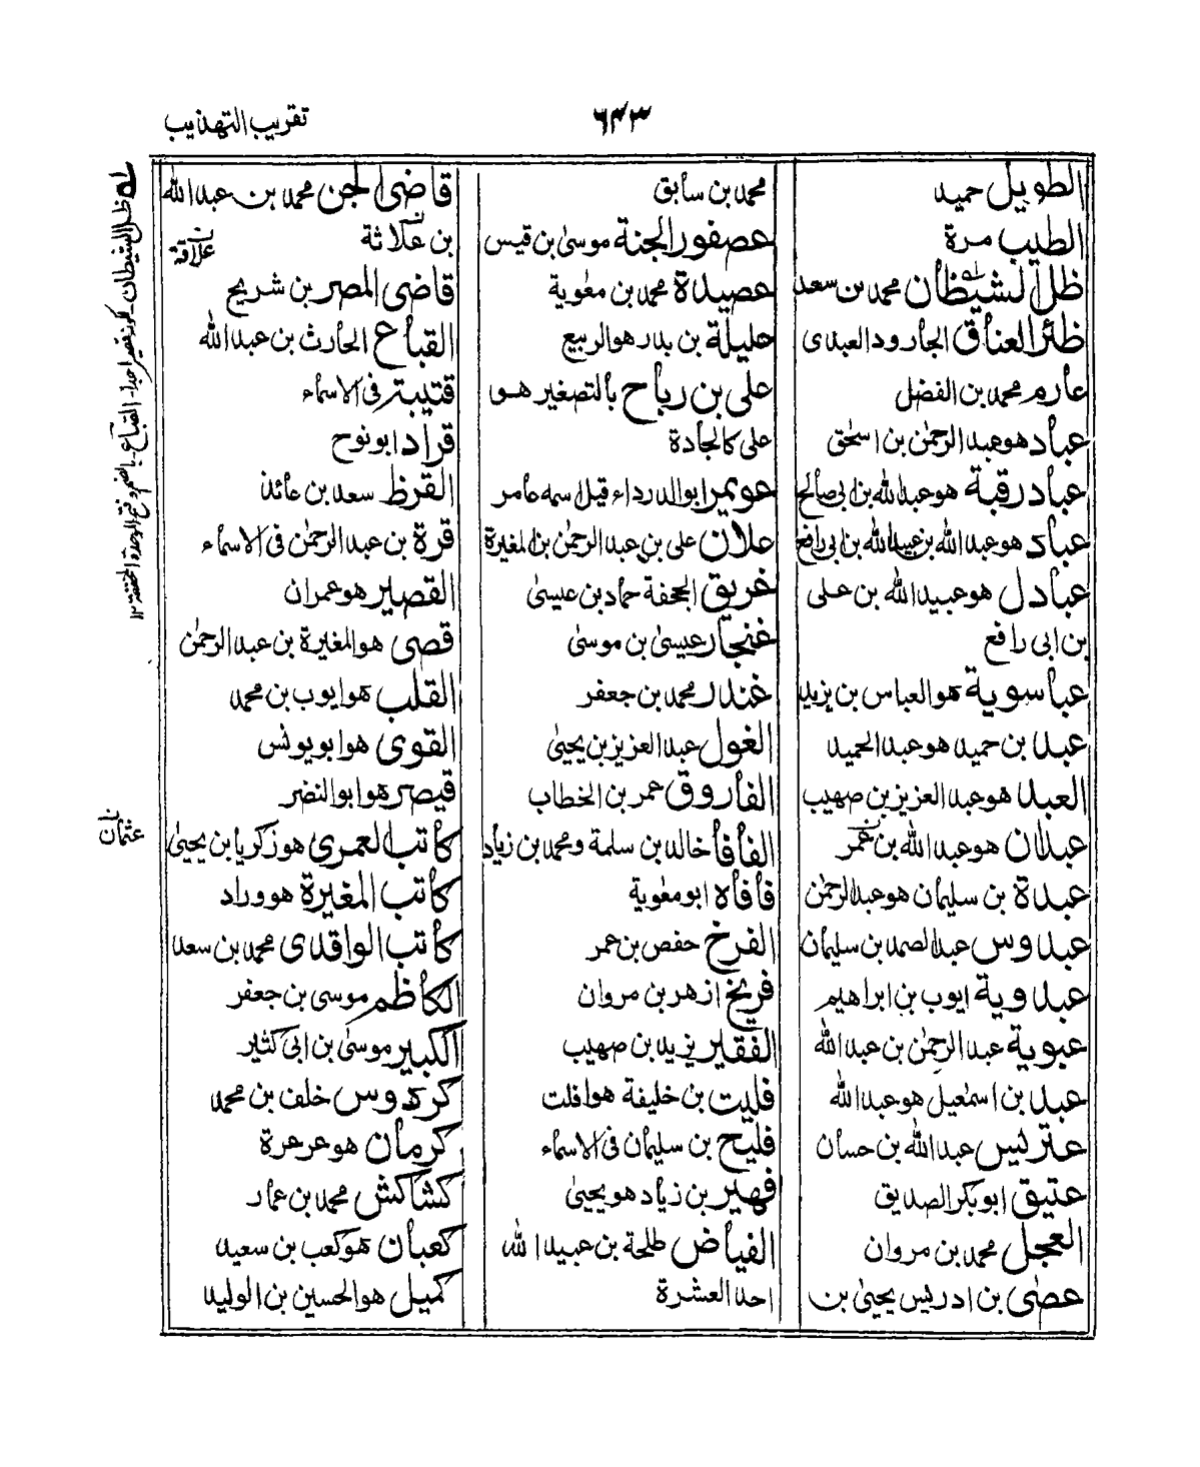 تقريب التهذيب
٦٤٣
الطويل حميد
الطيب مرة
ظل الشيطان محمد بن سعد
ظئر العناق الجارود العبدى
عارم محمد بن الفضل
عباد هو عبد الرحمٰن بن اسحٰق
عباد رقبة هو عبد الله بن ابى صالح
عباد هو عبد الله بن عبيد الله بن ابى رافع
عبادل هو عبيد الله بن على
بن ابى رافع
عباسوية هو العباس بن يزيد
عبد بن حميد هو عبد الحميد
العبد هو عبد العزيز بن صهيب
عبدان هو عبد الله بن عمر
عبدة بن سليمان هو عبد الرحمٰن
عبدوس عبد الصمد بن سليمان
عبدوية ايوب بن ابراهيم
عبوية عبد الرحمٰن بن عبد الله
عبد بن اسمٰعيل هو عبد الله
عتريس عبد الله بن حسان
عتيق ابو بكر الصديق
العجل محمد بن مروان
عصٰى بن ادريس يحيىٰ بن
محمد بن سابق
عصفور الجنة موسىٰ بن قيس
عصيدة محمد بن معٰوية
عليلة بن بدر هو الربيع
على بن رباح بالتصغير هو
على كالجادة
عويمر ابو الدرداء قيل اسمه عامر
علان على بن عبد الرحمٰن بن المغيرة
غريق الجحفة حماد بن عيسىٰ
غنجار عيسىٰ بن موسىٰ
غندر محمد بن جعفر
الغول عبد العزيز بن يحيىٰ
الفاروق عمر بن الخطاب
الفأفأ خالد بن سلمة ومحمد بن زياد
فأفأه ابو معٰوية
الفرخ حفص بن عمر
فريخ ازهر بن مروان
الفقير يزيد بن صهيب
فليت بن خليفة هو افلت
فليح بن سليمان فى الاسماء
فهير بن زياد هو يحيىٰ
الفياض طلحة بن عبيد الله
احد العشرة
قاضى الجن محمد بن عبد الله
بن علاثة
قاضى المصر بن شريح
القباع الحارث بن عبد الله
قتيبة فى الاسماء
قراد ابو نوح
القرظ سعد بن عائذ
قرة بن عبد الرحمٰن فى الاسماء
القصير هو عمران
قصى هو المغيرة بن عبد الرحمٰن
القلب هو ايوب بن محمد
القوى هو ابو يونس
قيصر هو ابو النضر
كاتب العمرى هو زكريا بن يحيىٰ
كاتب المغيرة هو وراد
كاتب الواقدى محمد بن سعد
الكاظم موسى بن جعفر
الكبير موسىٰ بن ابى كثير
كردوس خلف بن محمد
كرمان هو عرعرة
كشاكش محمد بن عمار
كعبان هو كعب بن سعيد
كميل هو الحسين بن الوليد
علاقة
عثمان
ظل الشيطان - لكونه قصيرا جدا - القباع - بالضم وفتح الموحدة المخففة ١٢